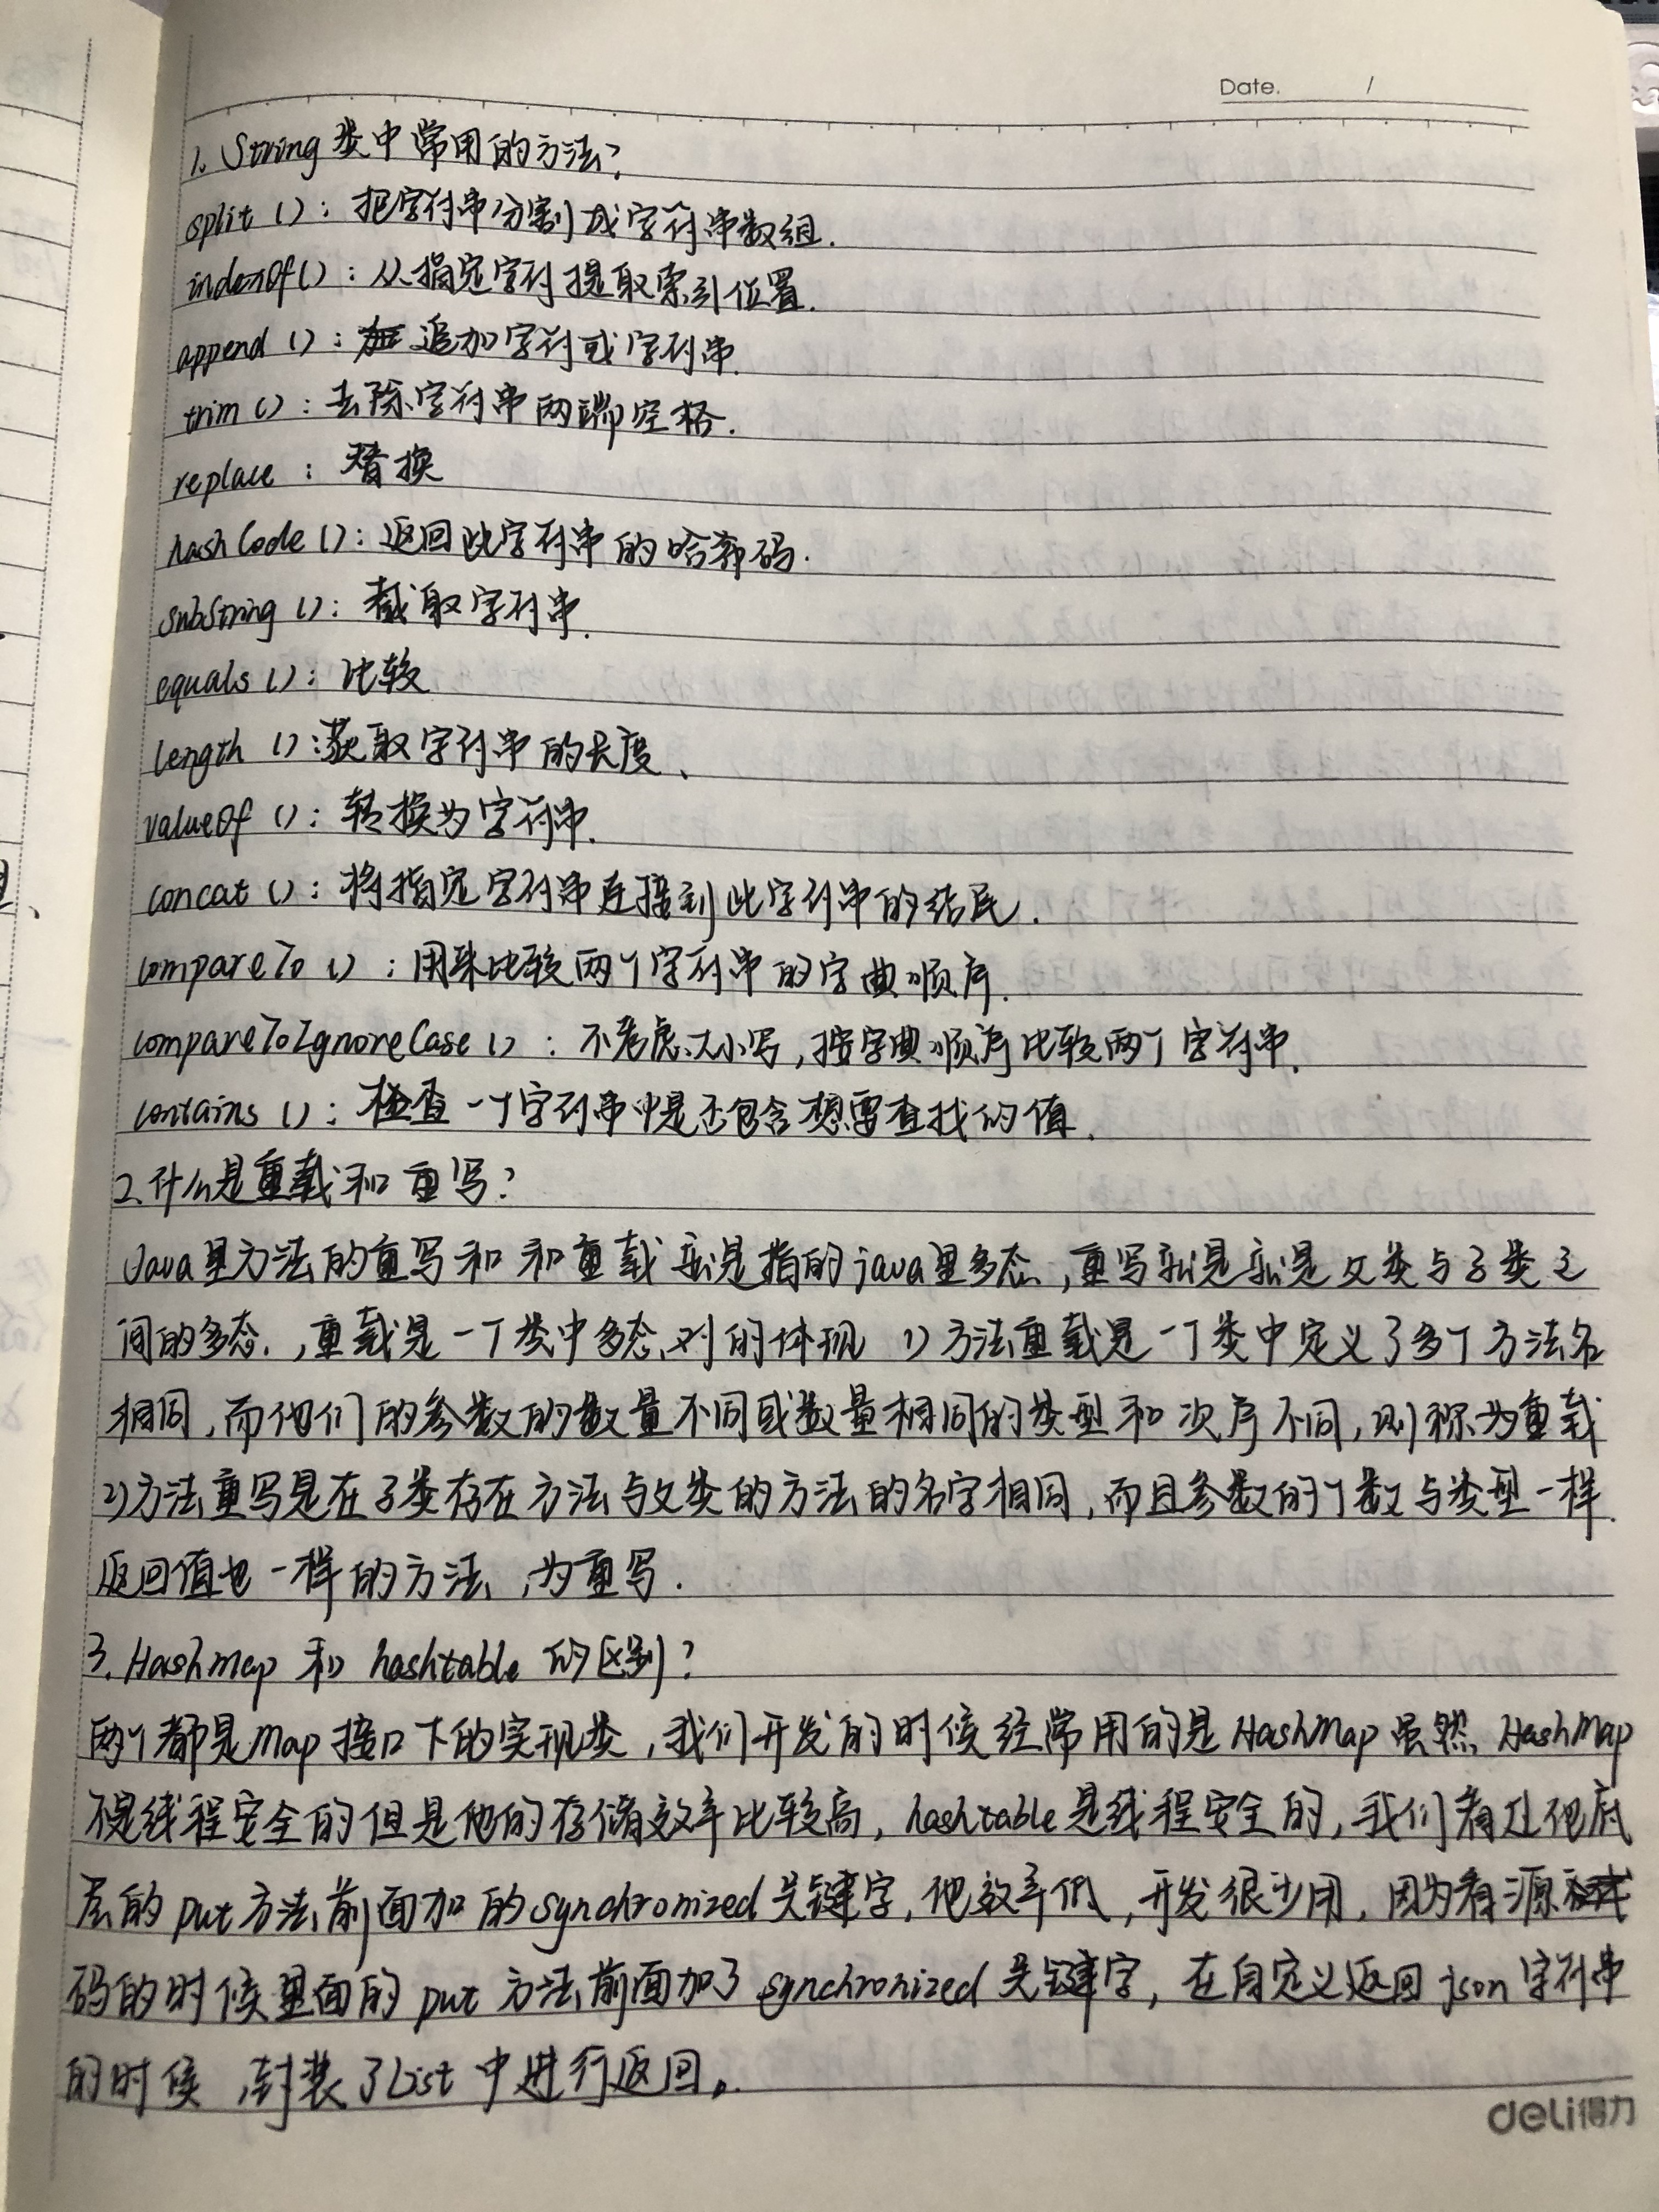 Date. /
1. String类中常用的方法?
split():把字符串分割成字符串数组.
indexOf():从指定字符提取索引位置.
append():追加字符或字符串.
trim():去除字符串两端空格.
replace:替换
hashCode():返回此字符串的哈希码.
subString():截取字符串.
equals():比较
length():获取字符串的长度、
valueOf():转换为字符串.
concat():将指定字符串连接到此字符串的结尾.
compareTo():用来比较两个字符串的字典顺序.
compareToIgnoreCase():不考虑大小写,按字典顺序比较两个字符串.
contains():检查一个字符串中是否包含想要查找的值.
2.什么是重载和重写?
Java里方法的重写和和重载就是指的java里多态,重写就是就是父类与子类之
间的多态.,重载是一个类中多态对的体现 1)方法重载是一个类中定义了多个方法名
相同,而他们的参数的数量不同或数量相同的类型和次序不同,则称为重载
2)方法重写是在子类存在方法与父类的方法的名字相同,而且参数的个数与类型一样.
返回值也一样的方法,为重写.
3. Hashmap 和 hashtable 的区别?
两个都是Map接口下的实现类,我们开发的时候经常用的是HashMap虽然HashMap
不是线程安全的但是他的存储效率比较高,hashtable是线程安全的,我们看过他底
层的put方法前面加的synchronized关键字,他效率低,开发很少用,因为看源
码的时候里面的put方法前面加了synchronized关键字,在自定义返回json字符串
的时候,封装了List中进行返回。
deli得力